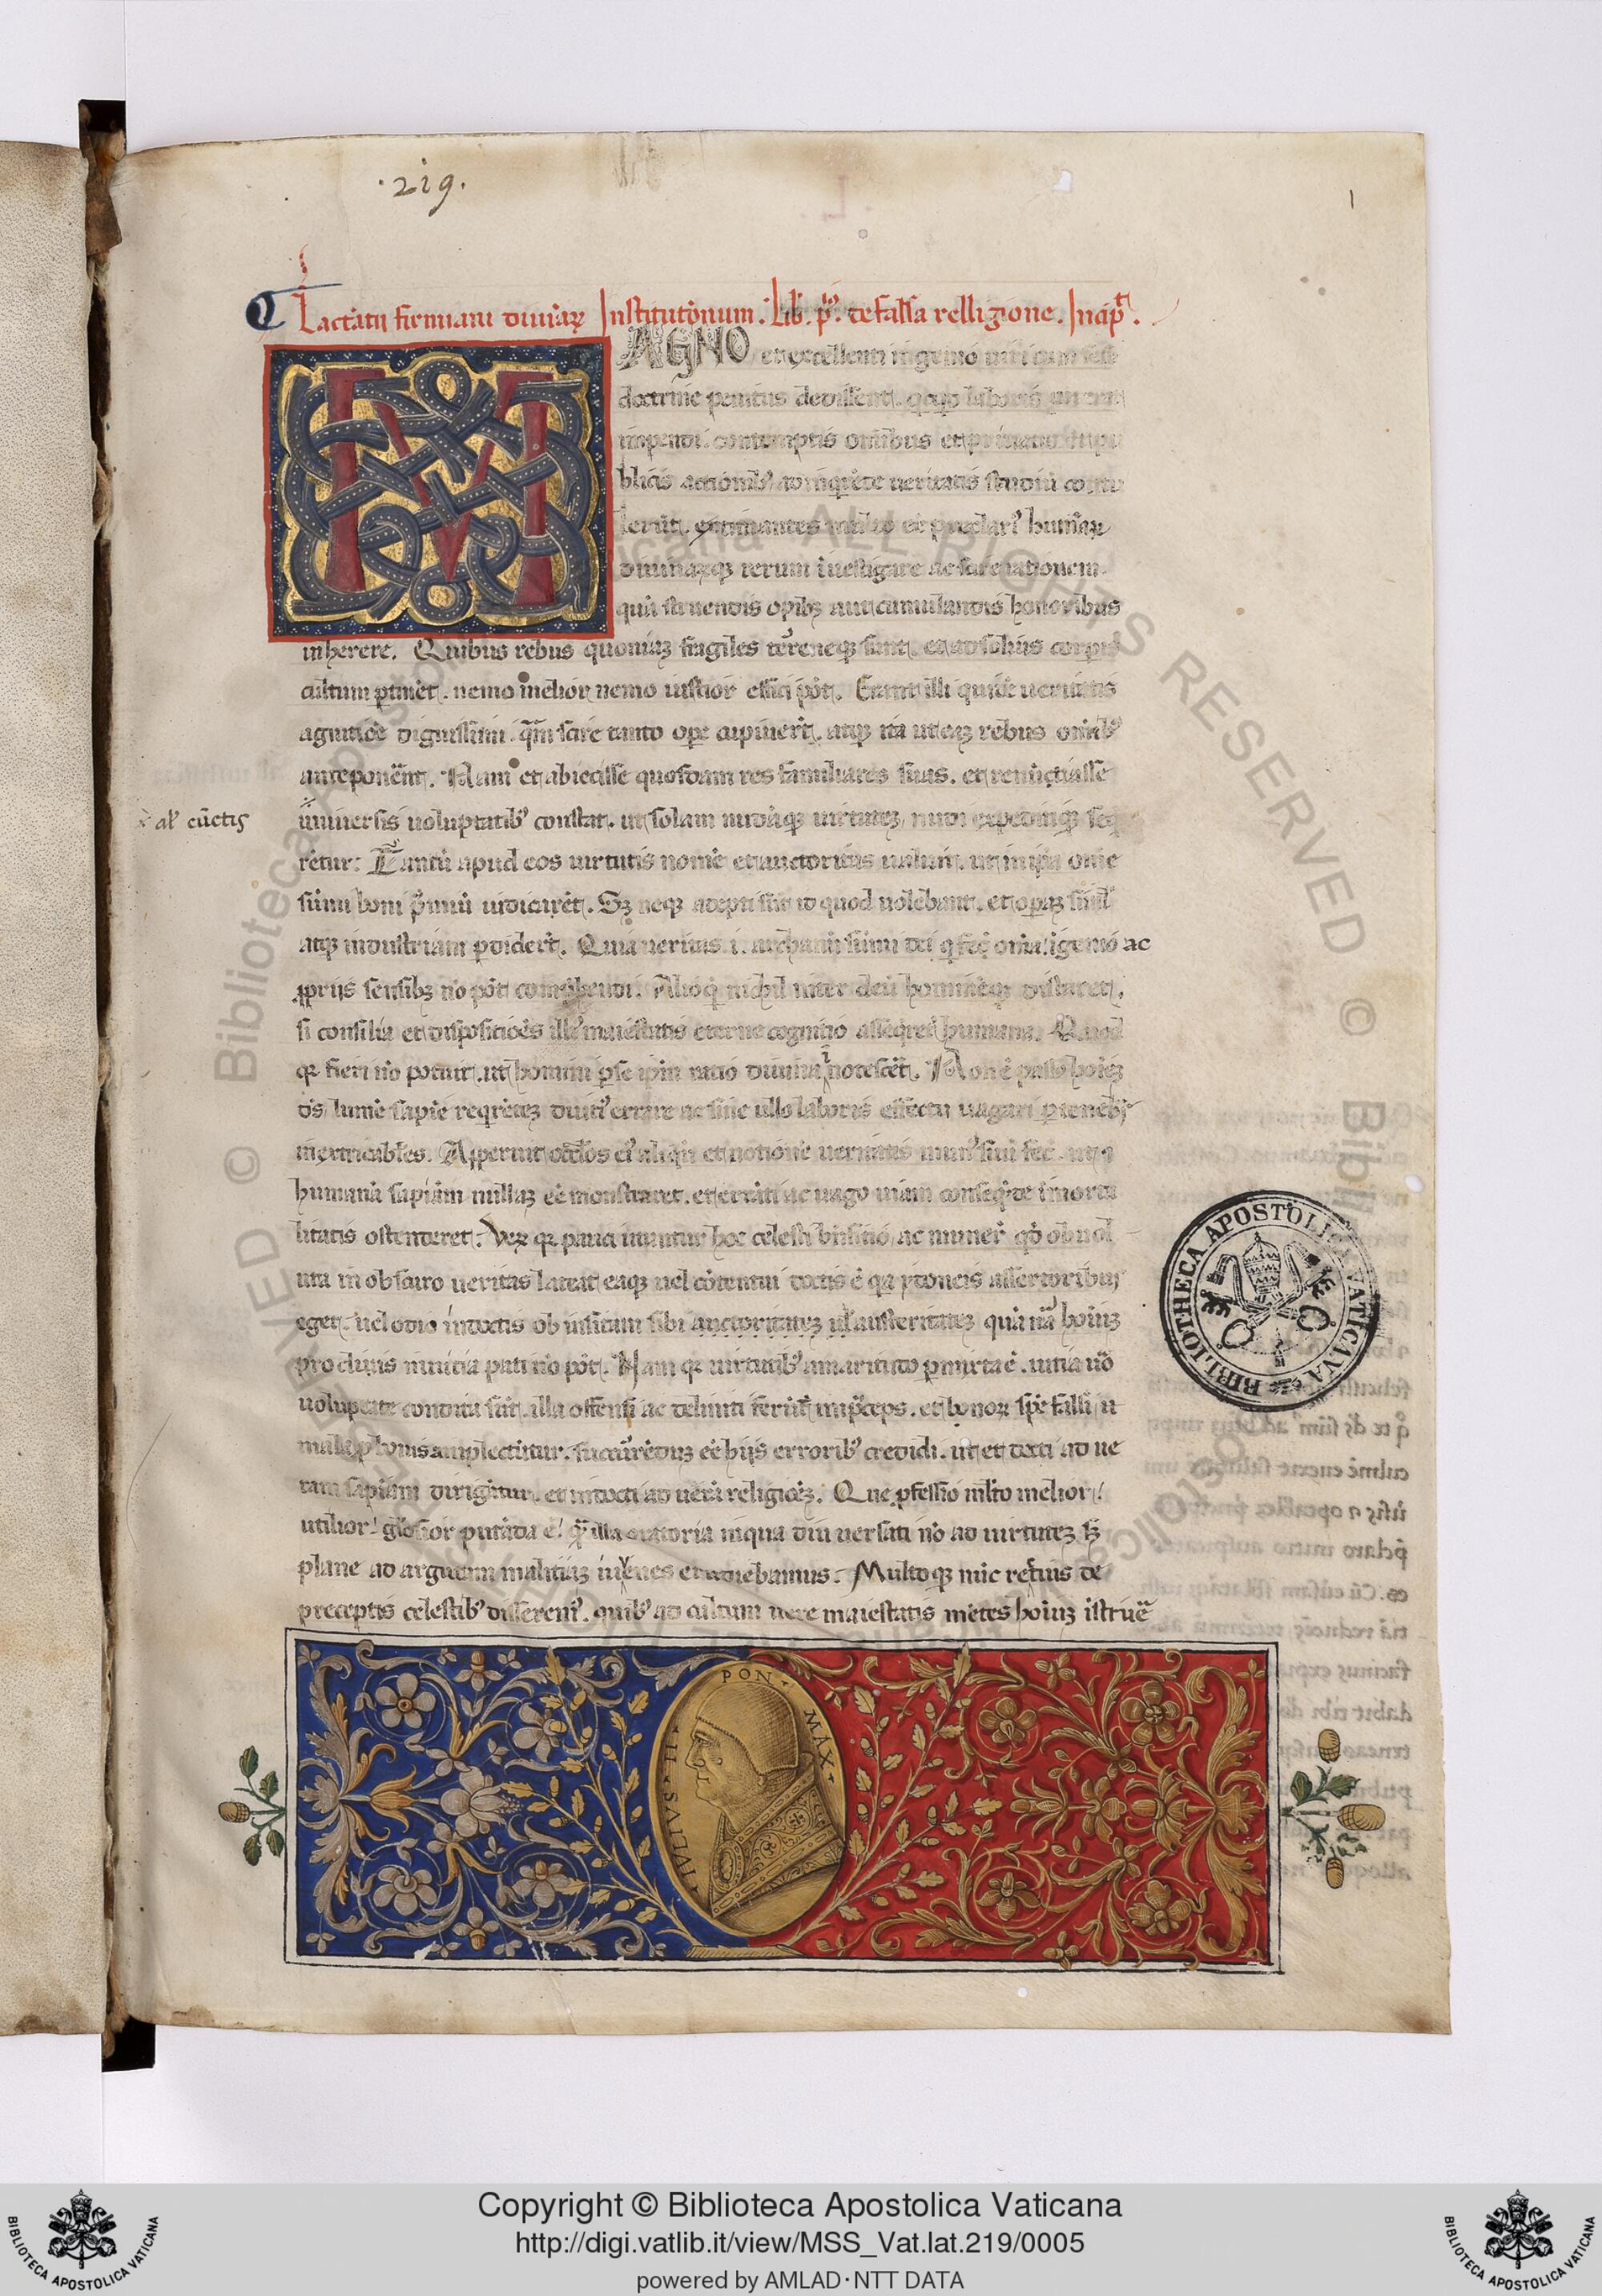 .219.
1
Lactātii firmiani diuinaꝝ Institutōnum. Lib. pͥmꝰ. de falsa relligione. Incipͭ.
MAGNO et excellenti ingenio uiri cum sese
doctrine penitus dedissent. quicquid laboris
impendi. contemptis omībus et priuatis
blicis actionibꝰ ad inquirēde ueritatis studiū
lerūt. existimantes multo eē preclariꝰ humāaꝝ
diuinaꝝqꝫ rerum inuestigare ac scire rationem.
quā struendis opibꝫ aut cumulandis honoribus
inherere. Quibus rebus quoniaꝫ fragiles terreneqꝫ sunt. et ad solius corporis
cultum ptinēt. nemo melior nemo iustior effici pōt. Erant illi quidē ueritatis
agnitiōe dignissimi. qm̄ scire tanto ope cupiuerūt. atqꝫ ita ut eaꝫ rebus omībꝰ
anteponerēnt. Nam et abiecisse quosdam res familiares suas. et renūctiasse
al' cūctis
uniuersis uoluptatibꝰ constat. ut solam nudāqꝫ uirtuteꝫ nudi expeditiqꝫ seq
rētur: Tantū apud eos uirtutis nomē et auctoritas ualuit. ut in ipsa
sūmi boni p̄miū iudicarēt. Sꝫ neqꝫ adepti sūt id quod uolebant. et operaꝫ simul
atqꝫ industriam pdiderūt. Quia ueritas .i. archanū sūmi dei q fecit omīa. īgenio ac
ꝓprijs sensibꝫ nō pōt comp̄hendi. Alioqͥ nichil inter deū hominēqꝫ distaret.
si consilia et dispositiōes illiꝰ maiestatis eterne cogitatio asseqret humana. Quod
qꝛ fieri nō potuit. ut homini p se ipm̄ ratio diuina īnotescet. Nō ē passus hoīeꝫ
dꝰs lumē sapiē reqrēteꝫ diutiꝰ errare ac sine ullo laboris effectu uagari p tenebras
inextricabiles. Apperuit oculos eiꝰ aliqn̄ et notionē ueritatis munꝰ suū fec. ut
humanā sapiām nullaꝫ eē monstraret. et errāti ac uago uiam conseqͣde īmorta
litatis ostenderet. Veꝝ qꝛ pauci utuntur hoc celesti bn̄ficio ac munere qd obuol
uta in obscuro ueritas latet eaqꝫ uel cōtemtui doctis ē qꝛ ydoneis assertoribus
eget. uel odio indoctis ob insitam sibi auctoritateꝫ ul' austeritateꝫ quā nā hoīuꝫ
procliuis in uicia pati nō pōt. Nam qꝛ uirtutibꝰ amaritudo pmixta ē. uitia uō
uoluptate condita sūt. illa offensi ac deliniti ferūtur imp̄ceps. et bonoꝝ spē falsi
mala p bonis amplectūtur. succurrēduꝫ eē hijs erroribꝰ credidi. ut et docti ad ue
ram sapiām dirigantur. et indocti ad uerā religiōeꝫ. Que pfessio mlto melior.
utilior. gl'osior putāda ē. qͣ illa oratoria inqua diu uersati nō ad uirtuteꝫ sꝫ
plane ad argutam malitiaꝫ iuuenes erudiebamus. Multoqꝫ nūc rectius de
preceptis celestibꝰ differemꝰ. quibꝰ ad cultum uere maiestatis mētes hoīuꝫ īstruē
IVLIVS · II · PON · MAX ·
BIBLIOTHECA APOSTOLICA VATICANA
Copyright © Biblioteca Apostolica Vaticana
http://digi.vatlib.it/view/MSS_Vat.lat.219/0005
powered by AMLAD·NTT DATA
BIBLIOTECA APOSTOLICA VATICANA
BIBLIOTECA APOSTOLICA VATICANA